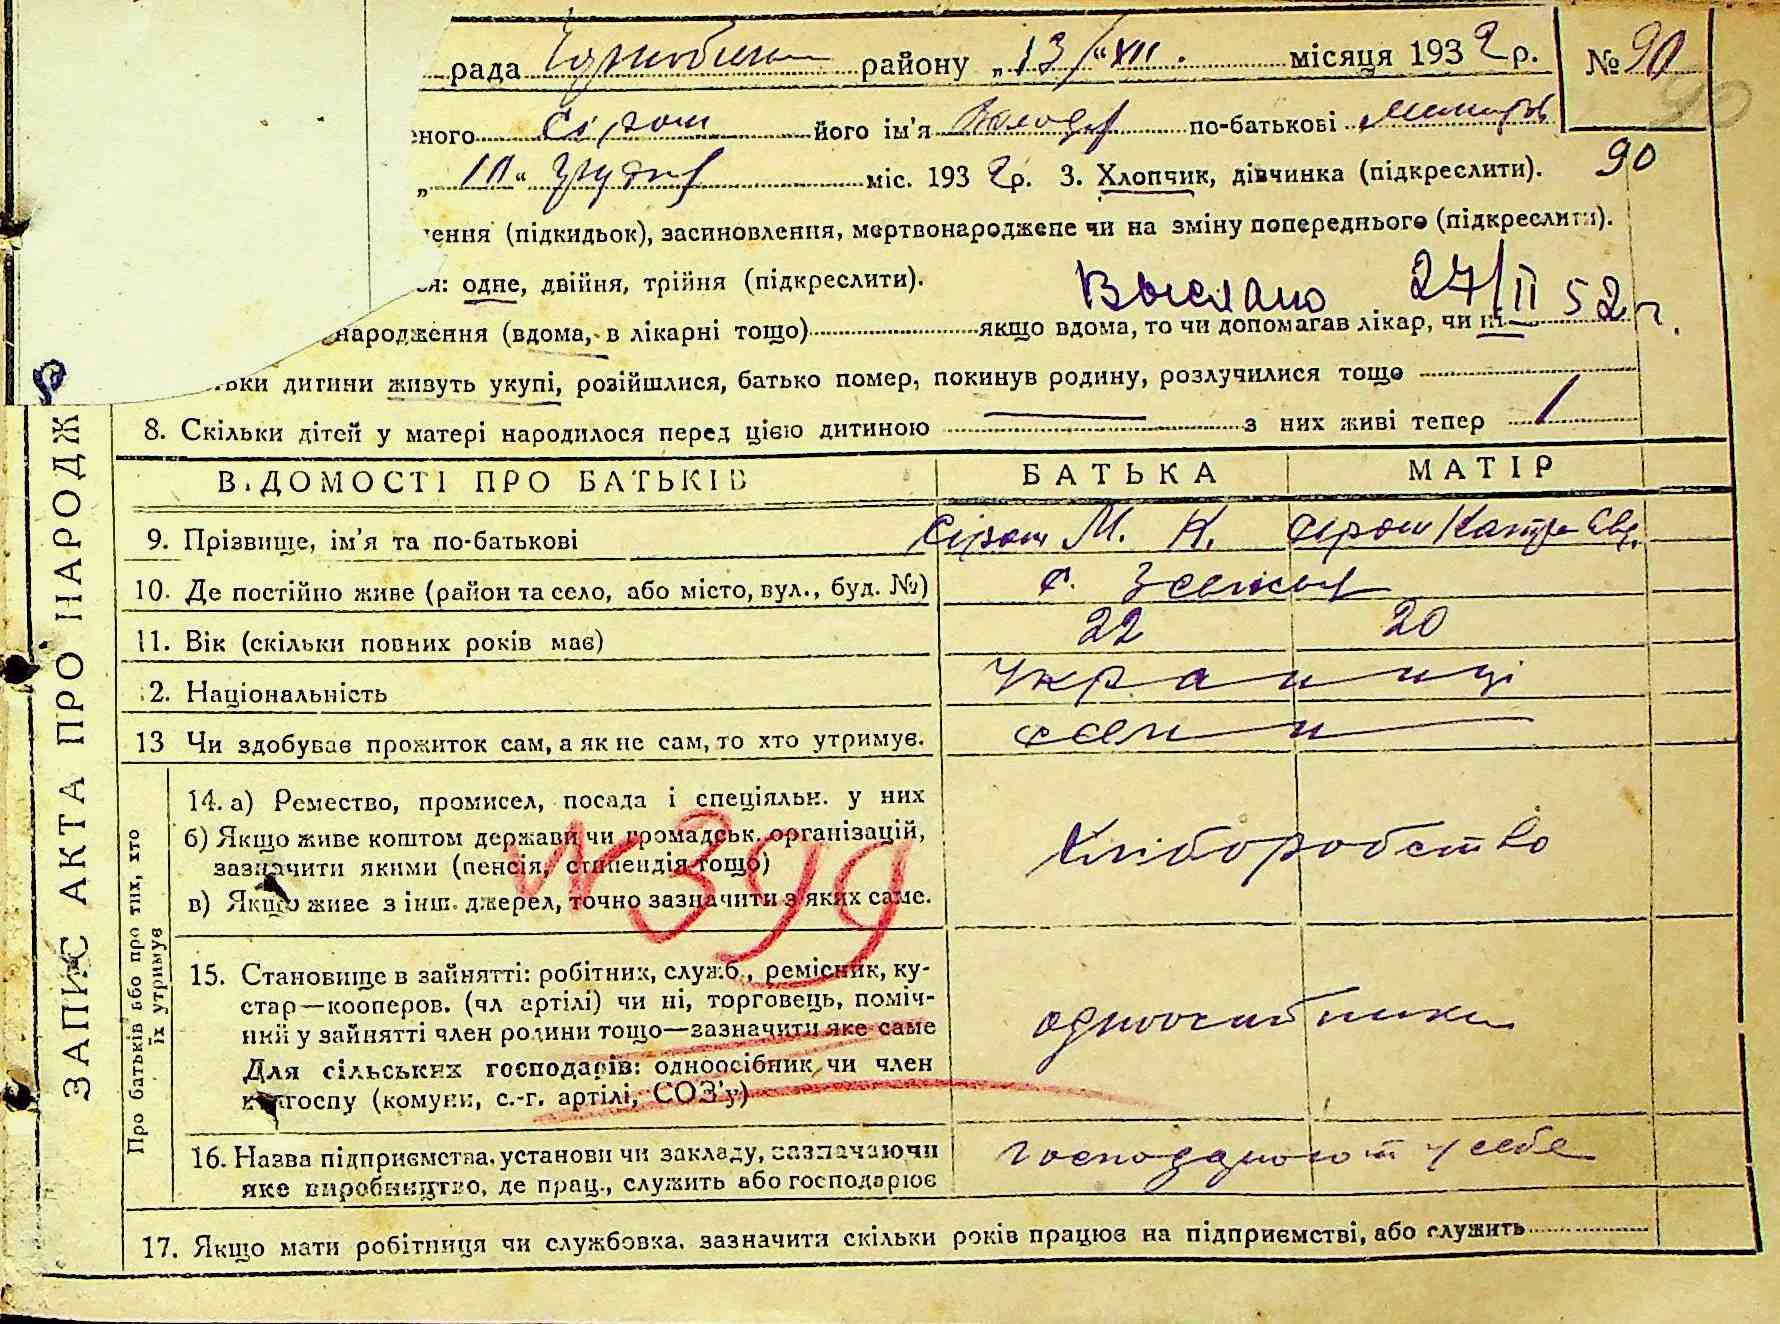 рада района „13/“ XII. місяця 1932 р. № 90
90
ного Сірош його ім'я Володи по-батькові
„10“ грудня міс. 1932 р. 3. Хлопчик, дівчинка (підкреслити). 90
ення (підкидьок), засиновлення, мертвонароджене чи на зміну попереднього (підкреслити).
ся: одне, двійня, трійня (підкреслити).
Выслано 27/II 52 г.
народження (вдома, в лікарні тощо) якщо вдома, то чи допомагав лікар, чи ні
тьки дитини живуть укупі, розійшлися, батько помер, покинув родину, розлучилися тощо
8. Скільки дітей у матері народилося перед цією дитиною — з них живі тепер 1
ЗАПИС АКТА ПРО НАРОДЖ
ВІДОМОСТІ ПРО БАТЬКІВ БАТЬКА МАТІР
9. Прізвище, ім'я та по-батькові Сірош М. К. Сірош Катр Євд.
10. Де постійно живе (район та село, або місто, вул., буд. №) с.
11. Вік (скільки повних років має) 22 20
12. Національність Українці
13 Чи здобуває прожиток сам, а як не сам, то хто утримує. сами
Про батьків або про тих, хто їх утримує
14. а) Ремество, промисел, посада і спеціяльн. у них
б) Якщо живе коштом держави чи громадськ. організацій,
зазначити якими (пенсія, стипендія тощо)
в) Якщо живе з інш. джерел, точно зазначити з яких саме.
хліборобство
№ 399
15. Становище в зайнятті: робітник, служб., ремісник, ку-
стар—кооперов. (чл артілі) чи ні, торговець, поміч-
ний у зайнятті член родини тощо—зазначити яке саме
Для сільських господарів: одноосібник чи член
колгоспу (комуни, с.-г. артілі, СОЗ'у)
одноосібники
16. Назва підприємства, установи чи закладу, зазначаючи
яке виробництво, де прац., служить або господарює
господарюють у себе
17. Якщо мати робітниця чи службовка, зазначити скільки років працює на підприємстві, або служить